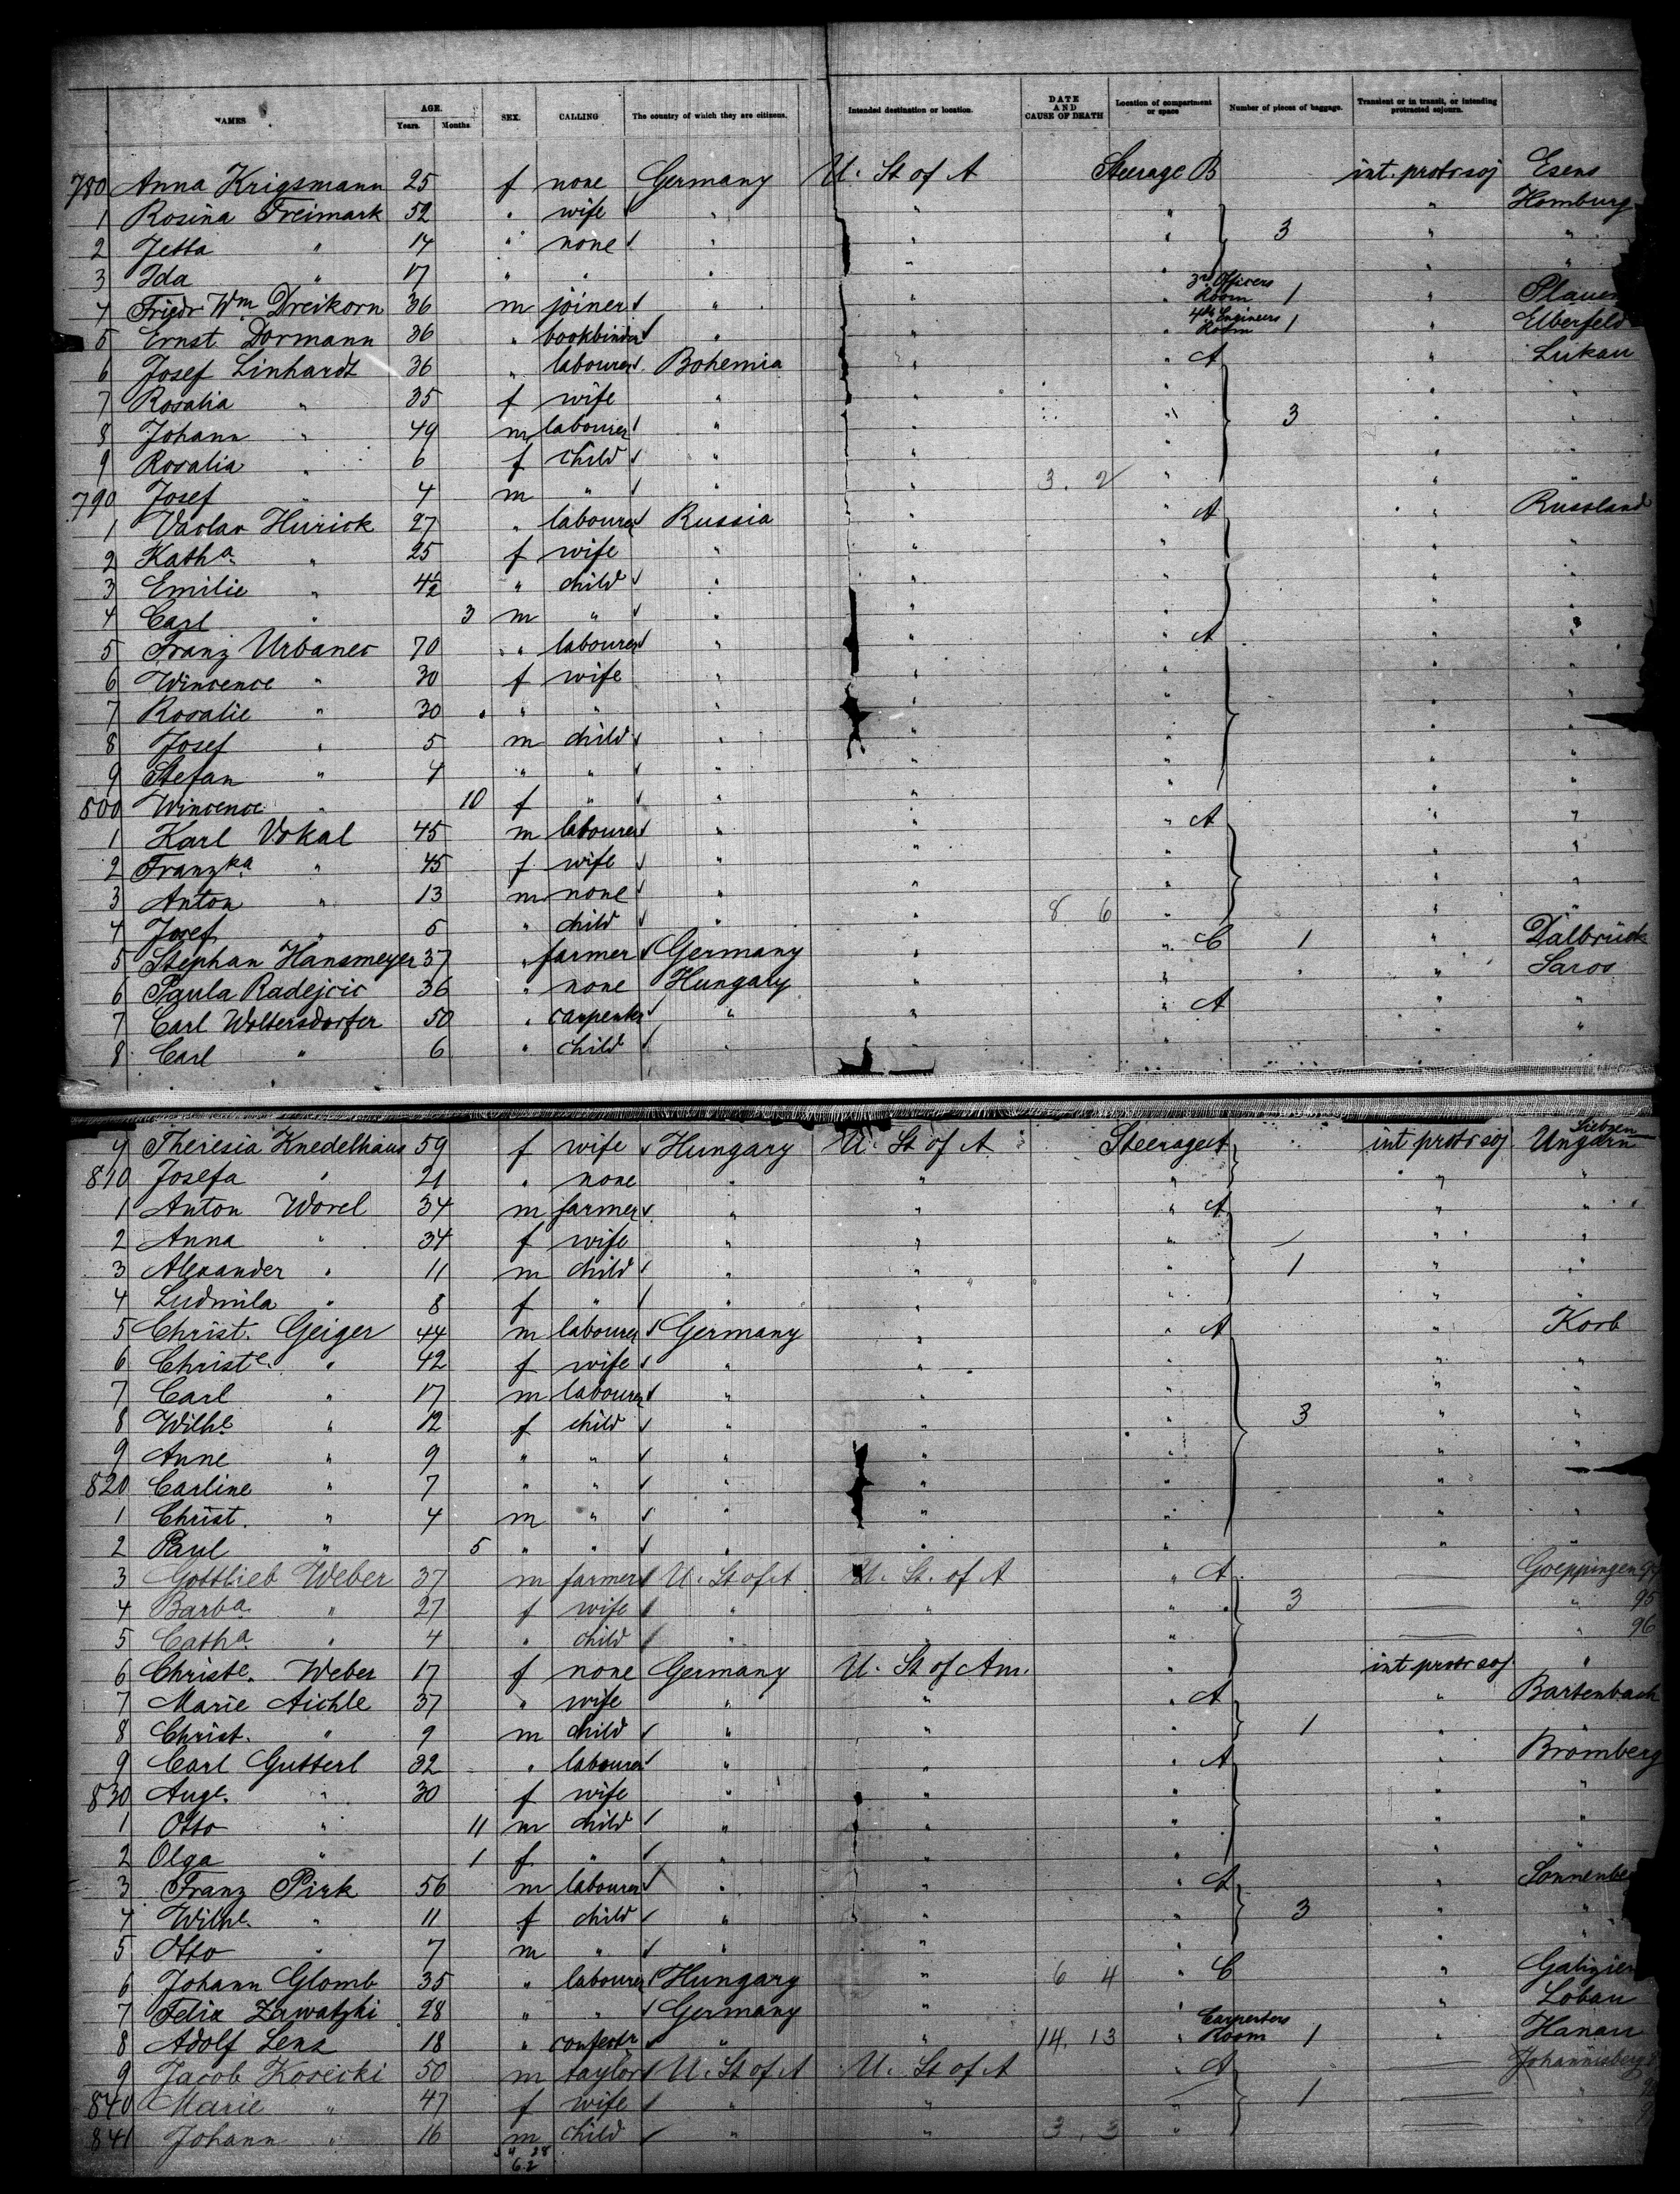 NAMES AGE. Years. Months. SEX. CALLING The country of which they are citizens. Intended destination or location. DATE AND CAUSE OF DEATH Location of compartment or space Number of pieces of baggage. Transient or in transit, or intending protracted sojourn.
780 Anna Krigsmann 25 f none Germany U. St of A Steerage B int. protr soj Esens
1 Rosina Freimark 52 " wife " " " " Homburg
2 Jetta " 14 " none " " " 3 " "
3 Ida " 17 " " " " " " "
4 Friedr Wm Dreikorn 36 m joiner " " " 3rd Officers Room 1 " Plauen
5 Ernst Dormann 36 " bookbinder " " " 4th Engineers Room 1 " Elberfeld
6 Josef Linhardt 36 " labourer Bohemia " " A " Lukau
7 Rosalia " 35 f wife " " " " "
8 Johann " 49 m labourer " " " 3 " "
9 Rosalia " 6 f child " " " " "
790 Josef " 4 m " " " 3. 2 " " "
1 Vaclav Hurick 27 " labourer Russia " " A " Russland
2 Katha " 25 f wife " " " " "
3 Emilie " 4½ " child " " " " "
4 Carl " 3 m " " " " " "
5 Franz Urbanec 70 " labourer " " " A " "
6 Wincence " 30 f wife " " " " "
7 Rosalie " 30 " " " " " " "
8 Josef " 5 m child " " " " "
9 Stefan " 4 " " " " " " "
800 Wincence " 10 f " " " " " "
1 Karl Vokal 45 m labourer " " " A " "
2 Franzka " 45 f wife " " " " "
3 Anton " 13 m none " " " " "
4 Josef " 5 " child " " 8 6 " " "
5 Stephan Hansmeyer 37 " farmer Germany " " C 1 " Dalbrück
6 Paula Radejcic 36 " none Hungary " " " " Saros
7 Carl Woltersdorfer 50 " carpenter " " " A " "
8 Carl " 6 " child " " " " "
9 Theresia Knedelhaus 59 f wife Hungary U. St of A Steerage A int protr soj Siebzen Ungarn
810 Josefa " 21 " none " " " " "
1 Anton Worel 34 m farmer " " " A " "
2 Anna " 34 f wife " " " " "
3 Alexander " 11 m child " " " 1 " "
4 Ludmila " 8 f " " " " " "
5 Christ. Geiger 44 m labourer Germany " " A " Korb
6 Christe. " 42 f wife " " " " "
7 Carl " 17 m labourer " " " " "
8 Wilhe " 12 f child " " " 3 " "
9 Anne " 9 " " " " " " "
820 Carline " 7 " " " " " "
1 Christ. " 4 m " " " " " "
2 Paul " 5 " " " " " " "
3 Gottlieb Weber 37 m farmer U. St of A U. St. of A " A — Goeppingen 94
4 Barba " 27 f wife " " " " 3 — " 95
5 Catha " 4 " child " " " — " 96
6 Christe. Weber 17 f none Germany U. St of Am. " int protr soj. "
7 Marie Aichle 37 " wife " " " A " Bartenbach
8 Christ. " 9 m child " " " 1 " "
9 Carl Gutterl 32 " labourer " " " A " Bromberg
830 Auge. " 30 f wife " " " " "
1 Otto " 11 m child " " " " "
2 Olga " 1 f " " " " " "
3 Franz Pirk 56 m labourer " " " A " Sonnenbe
4 Wilhe. " 11 f child " " " 3 " "
5 Otto " 7 m " " " " " "
6 Johann Glomb 35 " labourer Hungary " 6 4 " C " Galizien
7 Felix Zawatzki 28 " " Germany " " " Lobau
8 Adolf Lenz 18 " confectr " " 14. 13 " Carpenters Room 1 " Hanau
9 Jacob Kosecki 50 m taylor U. St of A U. St of A " A — Johannisberg
840 Marie " 47 f wife " " " 1 — "
841 Johann " 16 m child " " 3. 3 " — "